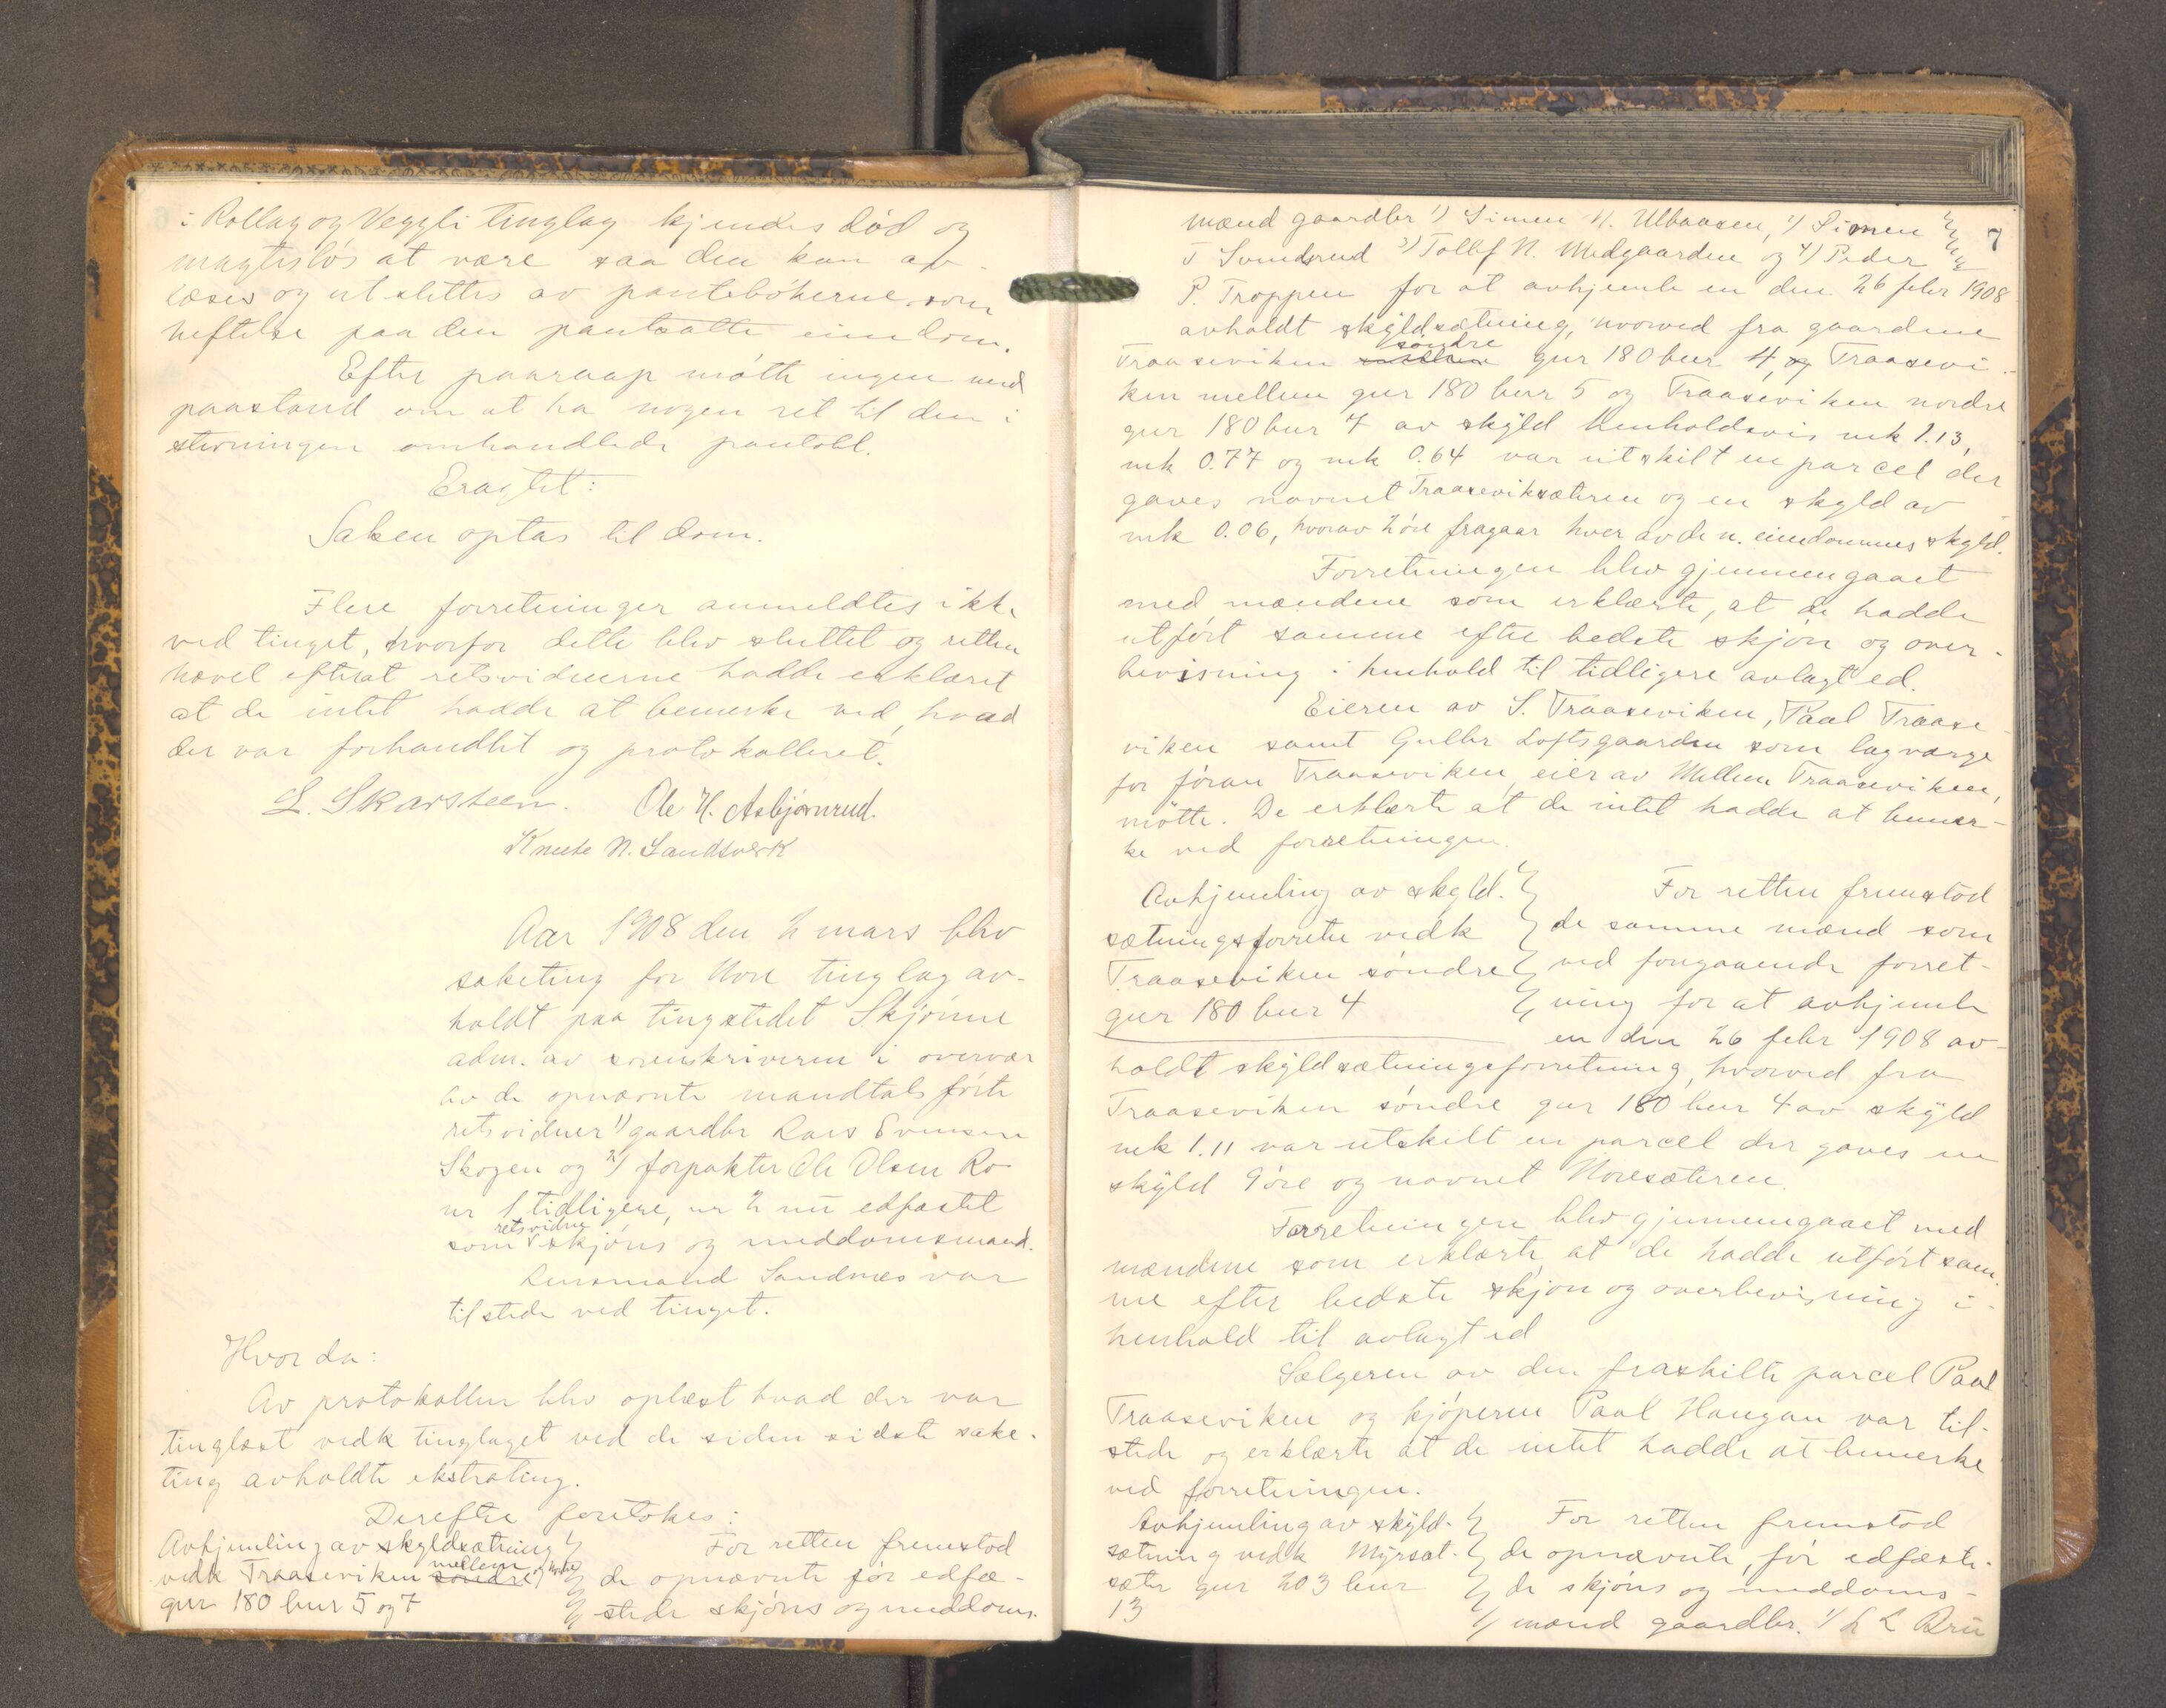 i Rollag og Veggli tinglag kjendes død og
magtesløs at være saa den kan av-
læses og utslettes av pantebøkerne som
heftelse paa den pantsatte eiendom.
Efter paaraap møtte ingen med
paastand om at ha nogen ret til den i
stevningen omhandlede pantobl.
Eragtet:
Saken optas til dom.
Flere forretninger anmeldtes ikke
ved tinget, hvorfor dette blev sluttet og retten
hævet efterat retsvidnerne hadde erklæret
at de intet hadde at bemerke ved, hvad
der var forhandlet og protokolleret.
L. Skarsteen. Ole H. Asbjørnrud.
Knute N. Landsverk
Aar 1908 den 2 mars blev
saketing for Nore tinglag av-
holdt paa tingstedet Skjønne
adm. av sorenskriveren i overvær
av de opnævnte mandtalsførte
retsvidner 1) gaardbr Lars Evensen
Skogen og 2) forpakter Ole Olsen Ro
nr 1 tidligere, nr 2 nu edfæstet
som retsvidne skjøns og meddomsmand.
Lensmand Sandnes var
tilstede ved tinget.
Hvor da:
Av protokollen blev oplæst hvad der var
tinglæst vedk tinglaget ved de siden sidste sake-
ting avholdte ekstrating.
Derefter foretokes:
Avhjemling av skyldsætning
vedk Traaseviken søndre mellem og nordre
gnr 180 bnr 5 og 7
For retten fremstod
de opnævnte før edfæ-
stede skjøns og meddoms-
7
mænd gaardbr 1) Simen H. Ulbaasen, 2) Simen
T Svendsrud 3) Tollef N. Medgaarden og 4) Peder
P. Troppen for at avhjemle en den 26 febr 1908
avholdt skyldsætning, hvorved fra gaardene
Traaseviken mellem søndre gnr 180 bnr 4, og Traasevi-
ken mellem gnr 180 bnr 5 og Traaseviken nordre
gnr 180 bnr 7 av skyld henholdsvis mk 1.13,
mk 0.77 og mk 0.64 var utskilt en parcel der
gaves navnet Traaseviksæteren og en skyld av
mk 0.06, hvorav 2 øre fragaar hver av de n. eiendommes skyld.
Forretningen blev gjennemgaaet
med mændene som erklærte, at de hadde
utført samme efter bedste skjøn og over-
bevisning i henhold til tidligere avlagt ed.
Eieren av S. Traaseviken, Paal Traase
viken samt Gulbr Loftsgaarden som lagværge
for Jøran Traaseviken, eier av Mellem Traaseviken,
møtte. De erklærte at de intet hadde at bemer-
ke ved forretningen.
Avhjemling av skyld-
sætningsforretn vedk
Traaseviken søndre
gnr 180 bnr 4
For retten fremstod
de samme mænd som
ved forgaaende forret-
ning for at avhjemle
en den 26 febr 1908 av-
holdt skyldsætningsforretning, hvorved fra
Traaseviken søndre gnr 180 bnr 4 av skyld
mk 1.11 var utskilt en parcel der gaves en
skyld 9 øre og navnet Noresæteren.
Forretningen blev gjennemgaaet med
mændene som erklærte, at de hadde utført sam-
me efter bedste skjøn og overbevisning i
henhold til avlagt ed
Sælgeren av den fraskilte parcel Paal
Traaseviken og kjøperen Paal Haugan var til-
stede og erklærte at de intet hadde at bemerke
ved forretningen.
Avhjemling av skyld-
sætning vedk Myrsæt-
sæter gnr 203 bnr
13
For retten fremstod
de opnævnte, før edfæste-
de skjøns og meddoms-
mænd gaardbr. 1) L L Bru